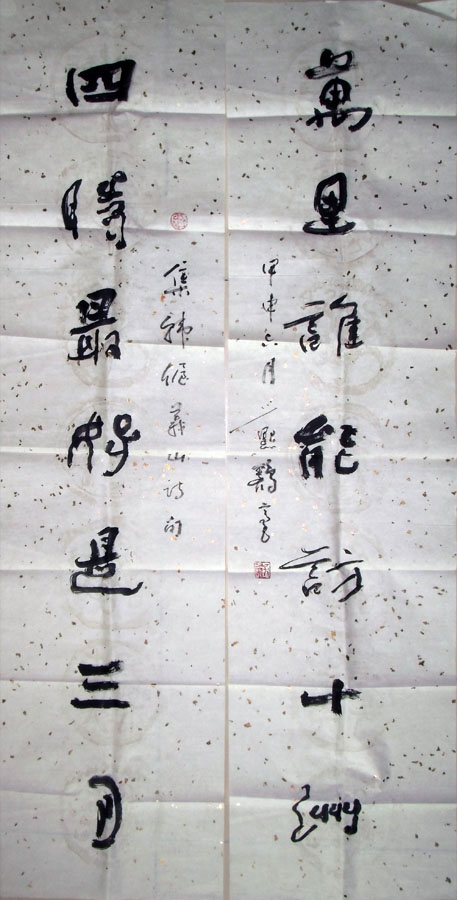 萬里誰能訪十洲
甲申六月
集韓偓義山詩句
四時最好是三月